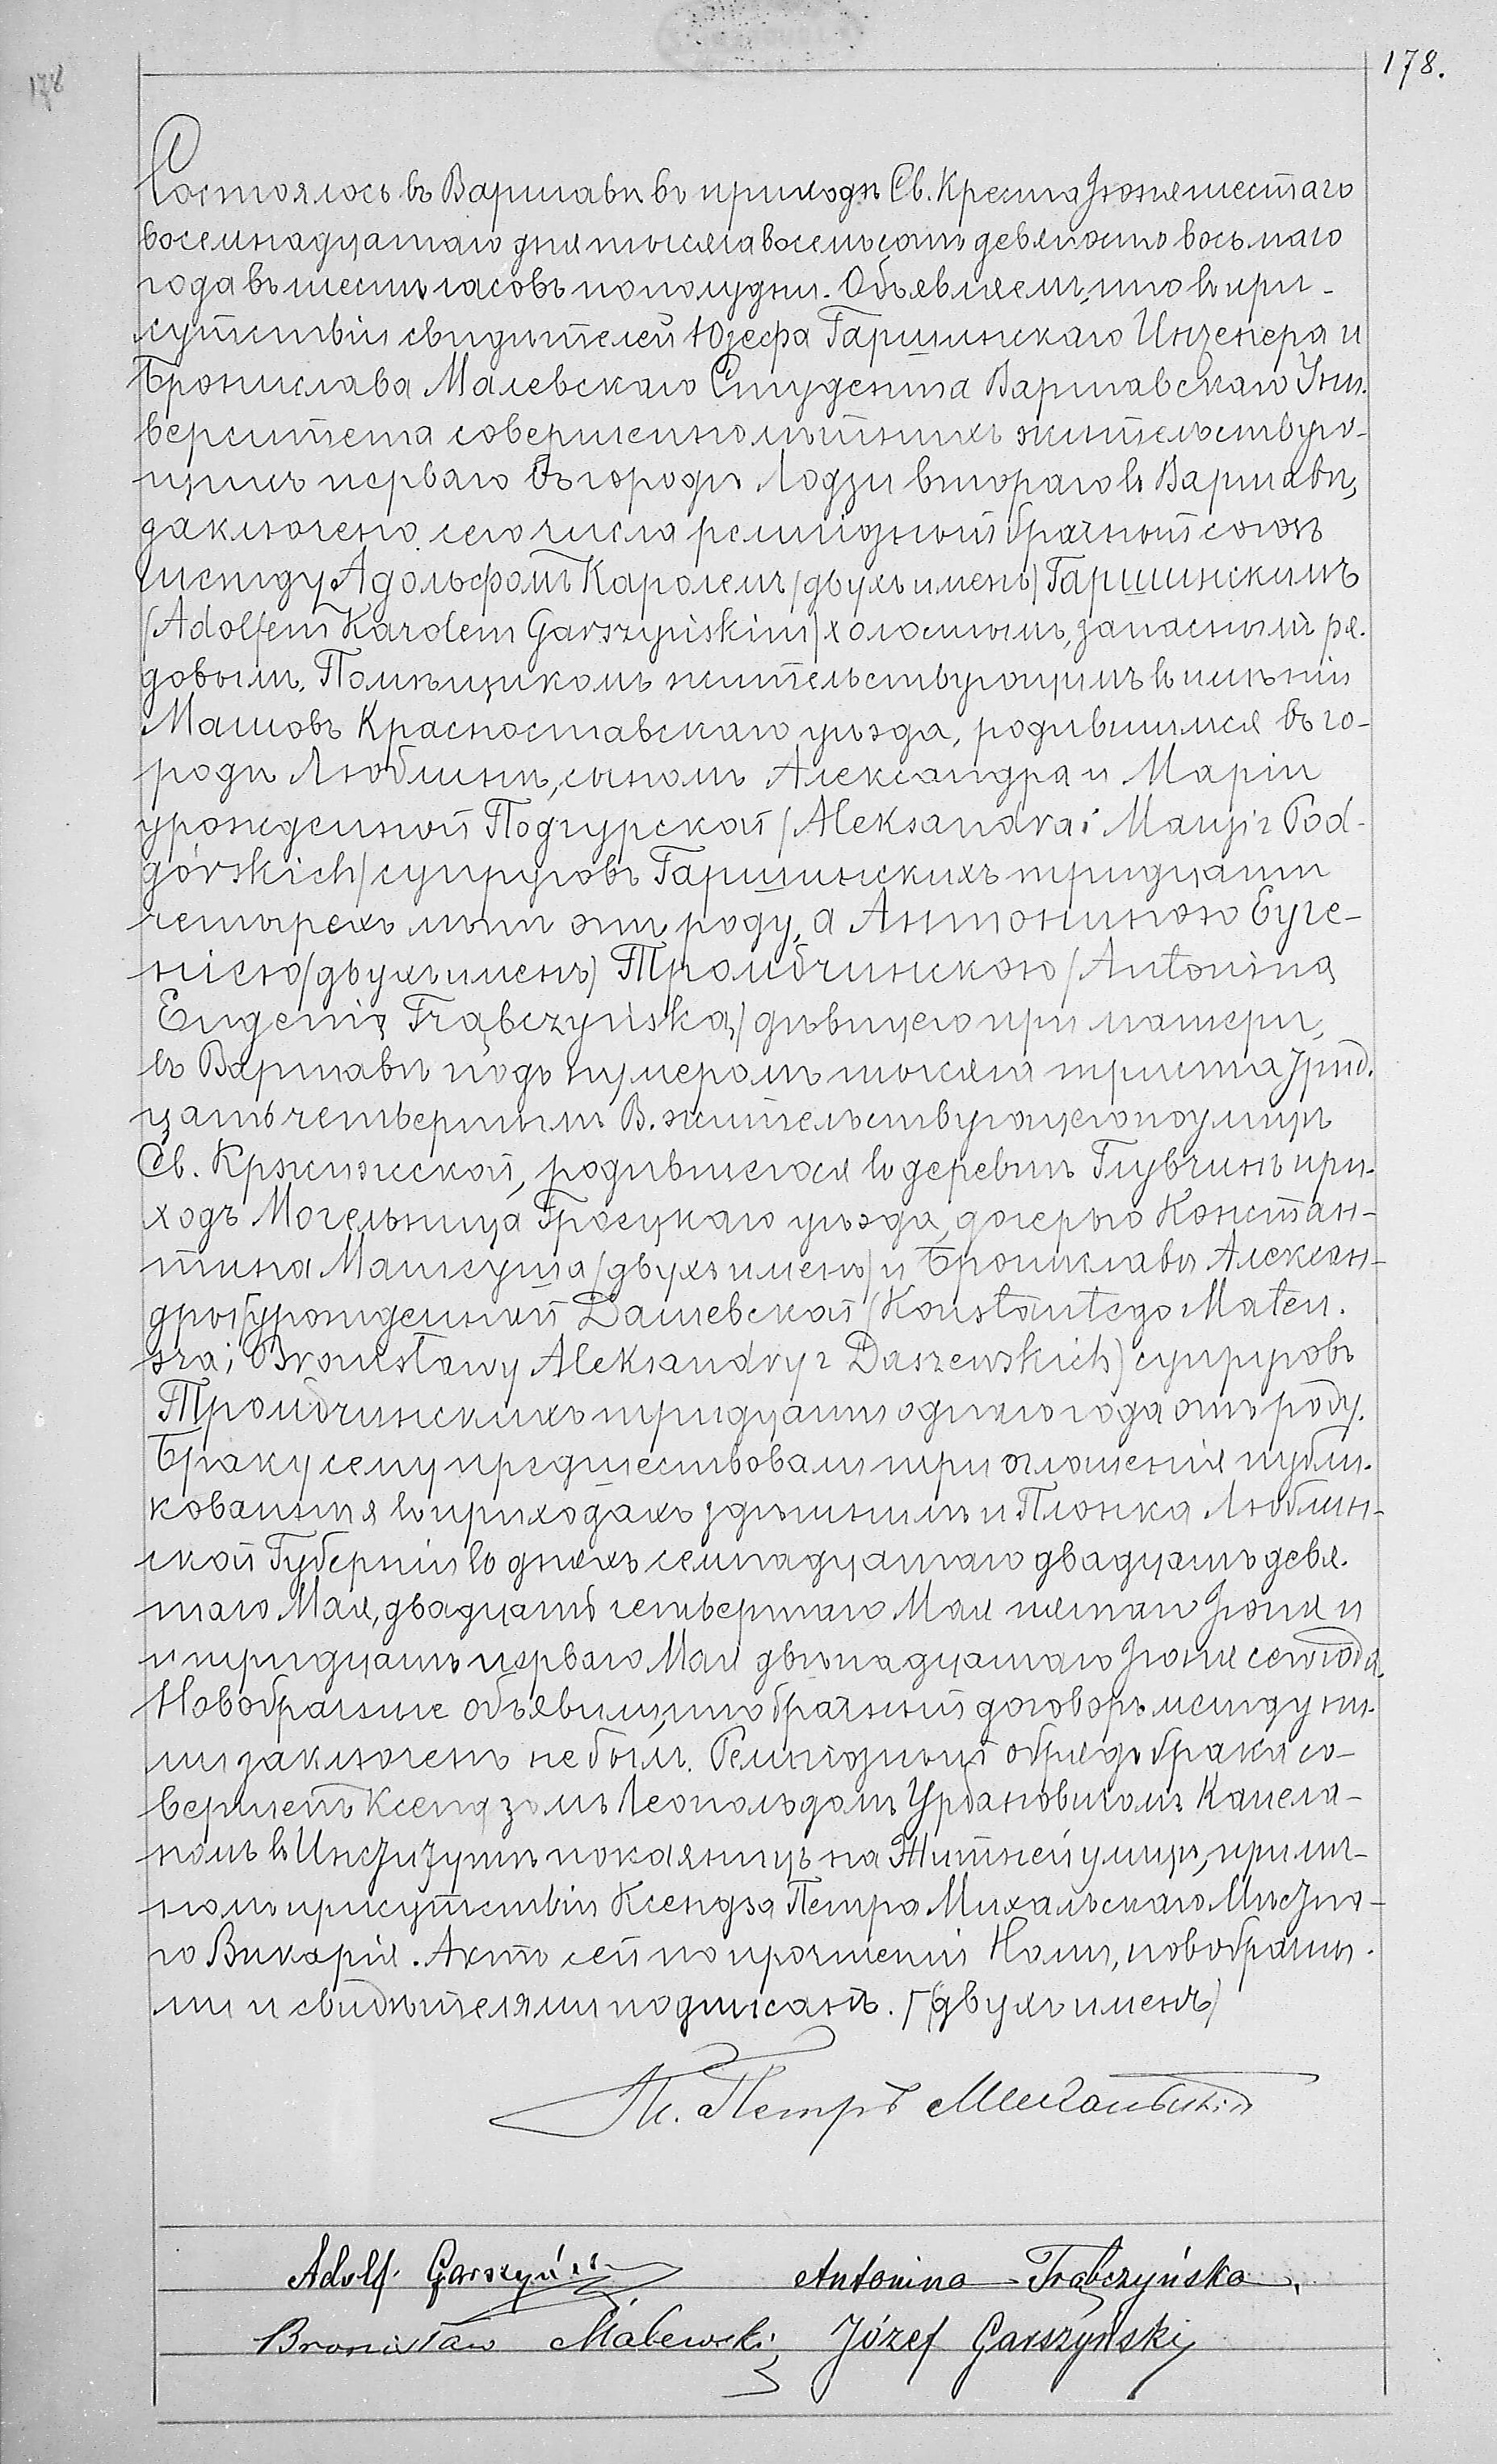 178
178.
Состоялось въ Варшавѣ въ приходѣ Св. Креста Іюня шестаго
восемнадцатаго дня тысяча восемьсотъ девяносто восьмаго
года въ шесть часовъ пополудни. Объявляемъ, что въ при-
сутствіи свидѣтелей Юзефа Гаршинскаго Инженера и
Бронислава Малевскаго Студента Варшавскаго Уни-
верситета совершеннолѣтнихъ жительствую-
щихъ перваго въ городѣ Лодзи втораго въ Варшавѣ,
заключено сего числа религіозный брачный союзъ
между Адольфомъ Каролемъ /двухъ именъ/ Гаршинскимъ
/Adolfem Karolem Garszyńskim/ холостымъ, запаснымъ ря-
довымъ, Помѣщикомъ жительствующимъ въ имѣніи
Машовъ Красноставскаго уѣзда, родившимся въ го-
родѣ Люблинѣ, сыномъ Александра и Маріи
урожденной Подгурской /Aleksandra i Maryi z Pod-
górskich/ супруговъ Гаршинскихъ тридцати
четырехъ лѣтъ отъ роду, а Антониною Еуге-
ніею /двухъ именъ/ Тромбчинскою /Antoniną
Eugenią Trąbczyńską/ дѣвицею при матери,
въ Варшавѣ подъ нумеромъ тысяча триста трид-
цать четвертымъ В. жительствующею по улицѣ
Св. Кржижской, родившеюся въ деревнѣ Глувчинъ при-
ходъ Могельница Гроецкаго уѣзда, дочерью Констан-
тина Матеуша /двухъ именъ/ и Брониславы Алексан-
дры Г урожденной Дашевской /Konstantego Mateu-
sza i Bronisławy Aleksandry z Daszewskich/ супруговъ
Тромбчинскихъ тридцати одного года отъ роду.
Браку сему предшествовали три оглашенія публи-
кованныя въ приходахъ здѣшнимъ и Плонка Люблин-
ской Губерніи въ дняхъ семнадцатаго двадцать девя-
таго Мая, двадцать четвертаго Мая пятаго Іюня и
и тридцать перваго Мая двѣнадцатаго Іюня сего года.
Новобрачные объявили, что брачный договоръ между ни-
ми заключенъ не былъ. Религіозный обрядъ брака со-
вершенъ Ксендзомъ Леопольдомъ Урбановичомъ Капела-
номъ въ Институтѣ покаянницъ на Житней улицѣ, при лич-
номъ присутствіи Ксендза Петра Михальскаго Мѣстно-
го Викарія. Актъ сей по прочтеніи Нами, новобрачны-
ми и свидѣтелями подписанъ. Г (двухъ именъ)
Кс. Петръ Михальскій
Adolf Garszyński Antonina Trąbczyńska
Bronisław Malewski Józef Garszyński